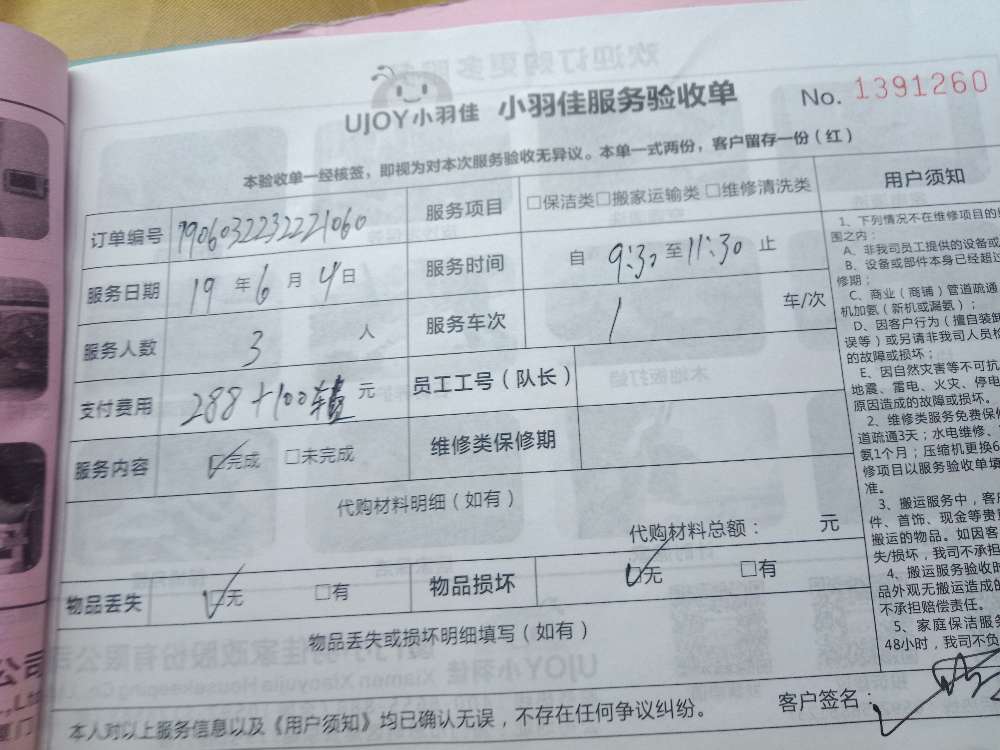 UJOY小羽佳 小羽佳服务验收单 No. 1391260
本验收单一经核签，即视为对本次服务验收无异议。本单一式两份，客户留存一份（红）
订单编号 1906032232221060 服务项目 □保洁类□搬家运输类 □维修清洗类
服务日期 19 年 6 月 4 日 服务时间 自 9:30 至 11:30 止
服务人数 3 人 服务车次 1 车/次
支付费用 288+100 元 员工工号（队长）
服务内容 ☑完成 □未完成 维修类保修期
代购材料明细（如有）
代购材料总额： 元
物品丢失 ☑无 □有 物品损坏 ☑无 □有
物品丢失或损坏明细填写（如有）
本人对以上服务信息以及《用户须知》均已确认无误，不存在任何争议纠纷。 客户签名：
用户须知
1、下列情况不在维修项目的
围之内：
A、非我司员工提供的设备或
B、设备或部件本身已经超过
修期；
C、商业（商铺）管道疏通
机加氨（新机或漏氨）；
D、因客户行为（擅自装卸
误等）或另请非我司人员
的故障或损坏；
E、因自然灾害等不可抗
地震、雷电、火灾、停电
原因造成的故障或损坏。
2、维修类服务免费保修
道疏通3天；水电维修、
氨1个月；压缩机更换6
修项目以服务验收单填
准。
3、搬运服务中，客户
件、首饰、现金等贵重
搬运的物品。如因客
失/损坏，我司不承担
4、搬运服务验收时
品外观无搬运造成的
不承担赔偿责任。
5、家庭保洁服务
48小时，我司不负